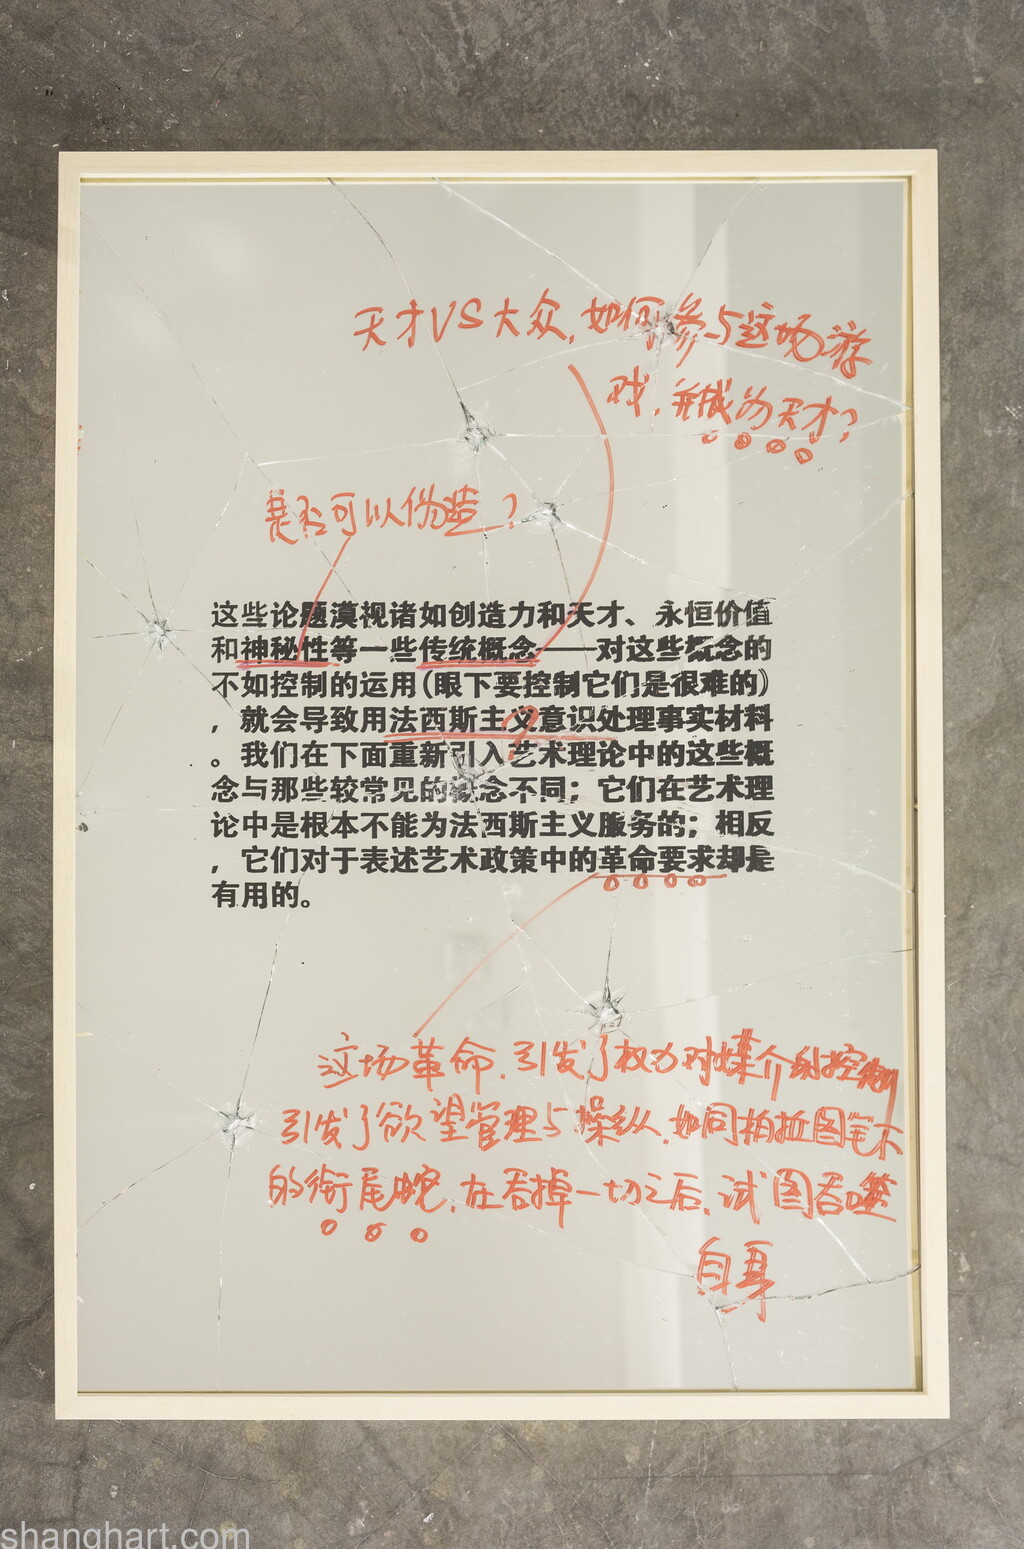 天才VS大众，如何参与这场游
戏，并成为天才？
是否可以伪造？
这些论题漠视诸如创造力和天才、永恒价值
和神秘性等一些传统概念——对这些概念的
不如控制的运用(眼下要控制它们是很难的)
，就会导致用法西斯主义意识处理事实材料
。我们在下面重新引入艺术理论中的这些概
念与那些较常见的概念不同；它们在艺术理
论中是根本不能为法西斯主义服务的；相反
，它们对于表述艺术政策中的革命要求却是
有用的。
这场革命，引发了权力对媒介的控制
引发了欲望管理与操纵，如同柏拉图笔下
的衔尾蛇，在吞掉一切之后，试图吞噬
自身
shanghart.com